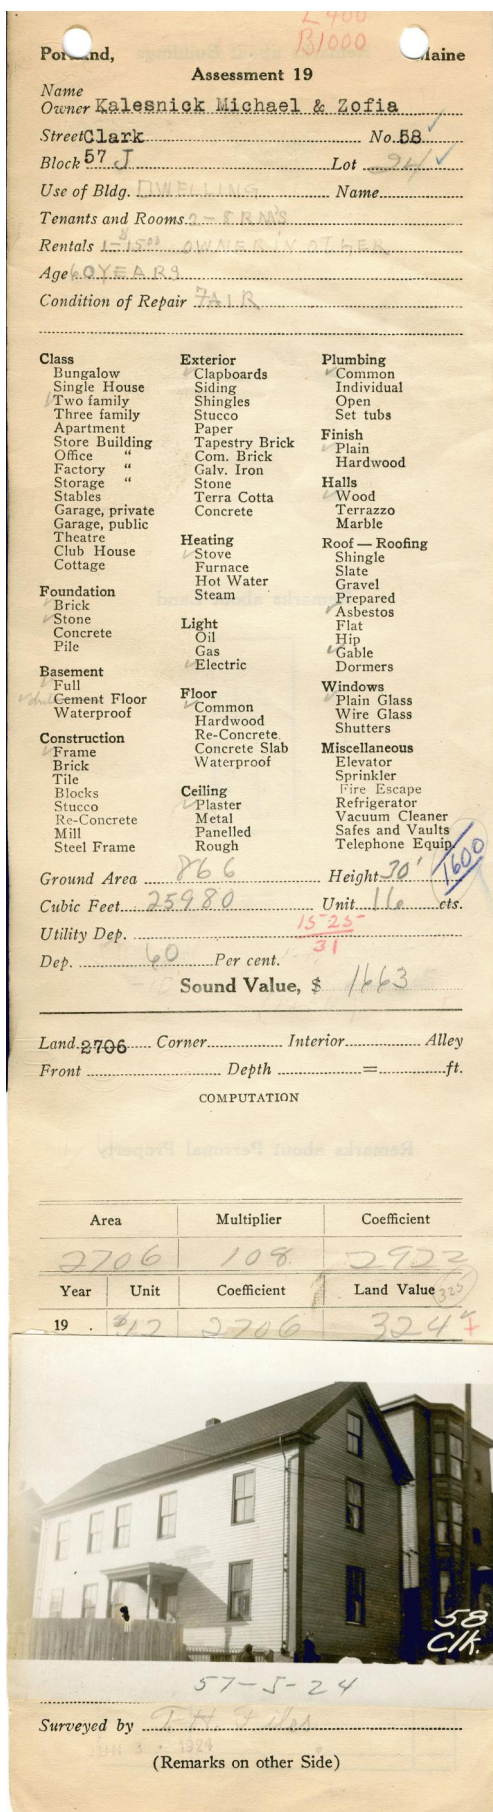 L 400
B1000
Portland, Maine
Assessment 19
Name
Owner Kalesnick Michael & Zofia
Street Clark No. 58
Block 57 J Lot 24
Use of Bldg. DWELLING Name
Tenants and Rooms 2-8 RM'S
Rentals 1-$15.00 OWNER IN OTHER
Age 60 YEARS
Condition of Repair FAIR
Class
Bungalow
Single House
Two family
Three family
Apartment
Store Building
Office "
Factory "
Storage "
Stables
Garage, private
Garage, public
Theatre
Club House
Cottage
Foundation
Brick
Stone
Concrete
Pile
Basement
Full
Cement Floor
Waterproof
Construction
Frame
Brick
Tile
Blocks
Stucco
Re-Concrete
Mill
Steel Frame
Exterior
Clapboards
Siding
Shingles
Stucco
Paper
Tapestry Brick
Com. Brick
Galv. Iron
Stone
Terra Cotta
Concrete
Heating
Stove
Furnace
Hot Water
Steam
Light
Oil
Gas
Electric
Floor
Common
Hardwood
Re-Concrete
Concrete Slab
Waterproof
Ceiling
Plaster
Metal
Panelled
Rough
Plumbing
Common
Individual
Open
Set tubs
Finish
Plain
Hardwood
Halls
Wood
Terrazzo
Marble
Roof — Roofing
Shingle
Slate
Gravel
Prepared
Asbestos
Flat
Hip
Gable
Dormers
Windows
Plain Glass
Wire Glass
Shutters
Miscellaneous
Elevator
Sprinkler
Fire Escape
Refrigerator
Vacuum Cleaner
Safes and Vaults
Telephone Equip.
1600
Ground Area 866 Height 30'
Cubic Feet 25980 Unit 16 cts.
Utility Dep. 15-25
31
Dep. 60 Per cent.
Sound Value, $ 1663
Land 2706 Corner Interior Alley
Front Depth = ft.
COMPUTATION
Remarks about Personal Property
Area Multiplier Coefficient
2706 108 2922
Year Unit Coefficient Land Value 325
19 $12 2706 324
58
Clk.
57-J-24
Surveyed by
1924
(Remarks on other Side)